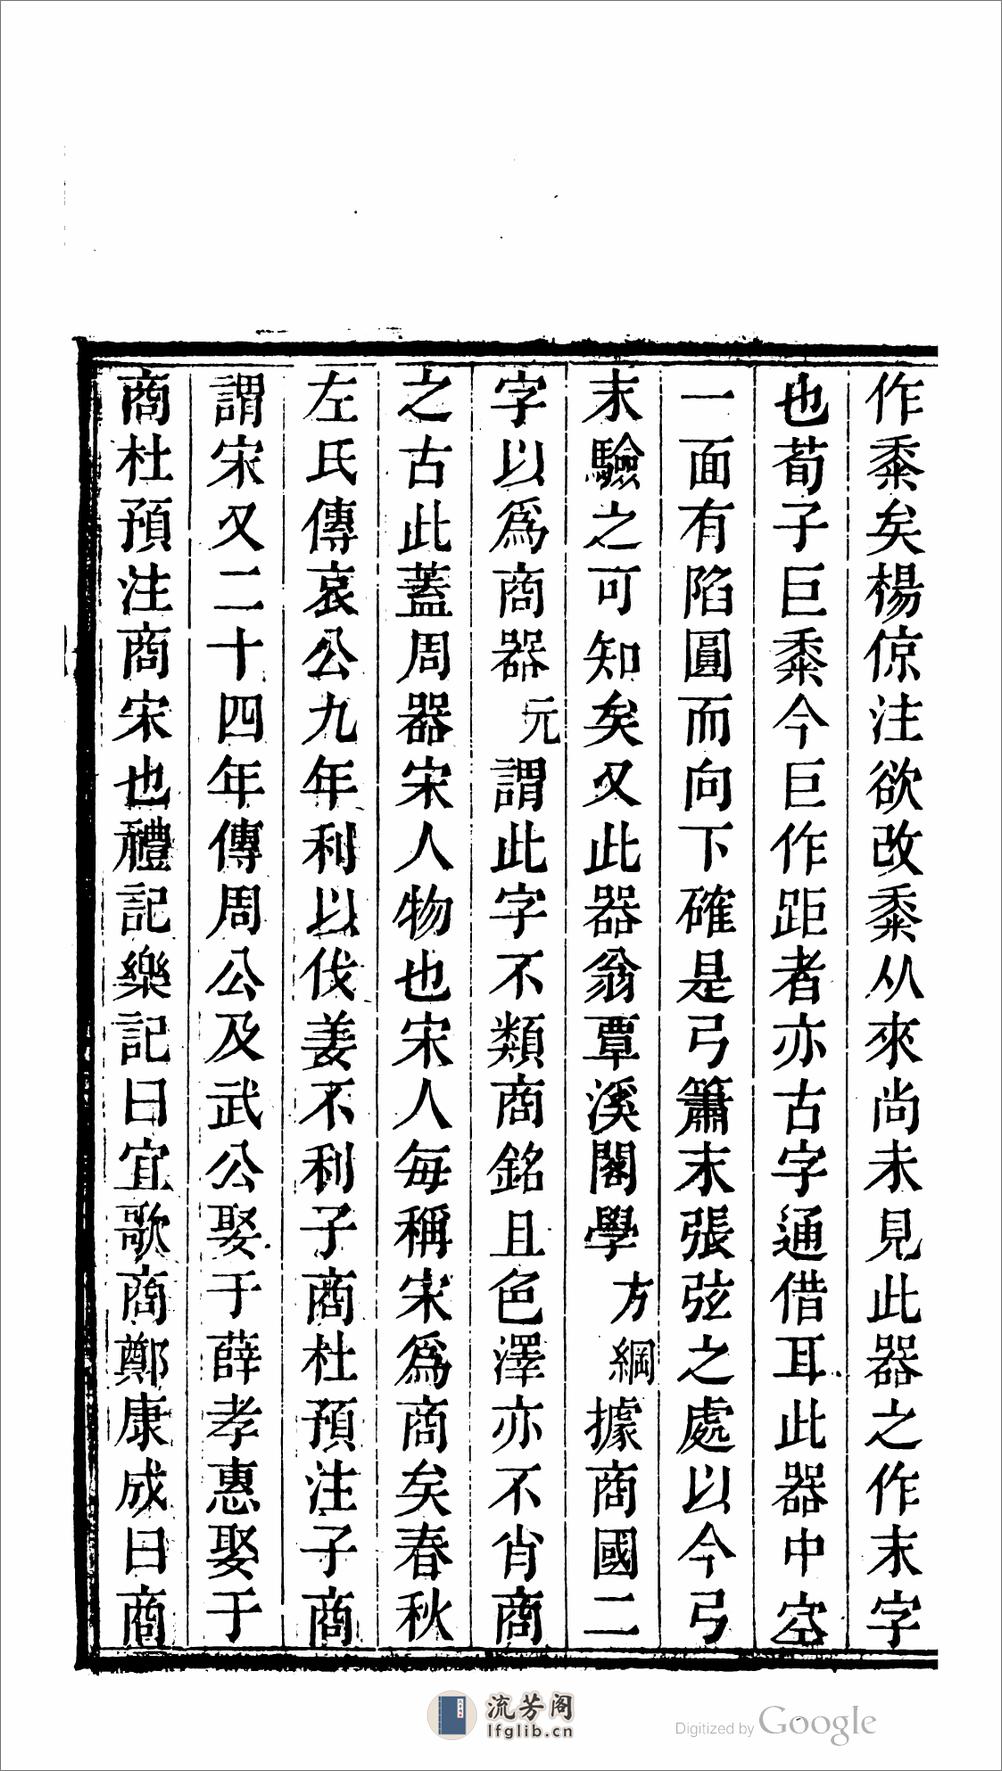 作黍矣楊倞注欲改黍从來尚未見此器之作末字
也荀子巨黍今巨作距者亦古字通借耳此器中空
一面有陷圓而向下確是弓簫末張弦之處以今弓
末驗之可知矣又此器翁覃溪閣學方綱據商國二
字以爲商器元謂此字不類商銘且色澤亦不肖商
之古此蓋周器宋人物也宋人每稱宋爲商矣春秋
左氏傳哀公九年利以伐姜不利子商杜預注子商
謂宋又二十四年傳周公及武公娶于薛孝惠娶于
商杜預注商宋也禮記樂記曰宜歌商鄭康成曰商
流芳阁
lfglib.cn
Digitized by Google